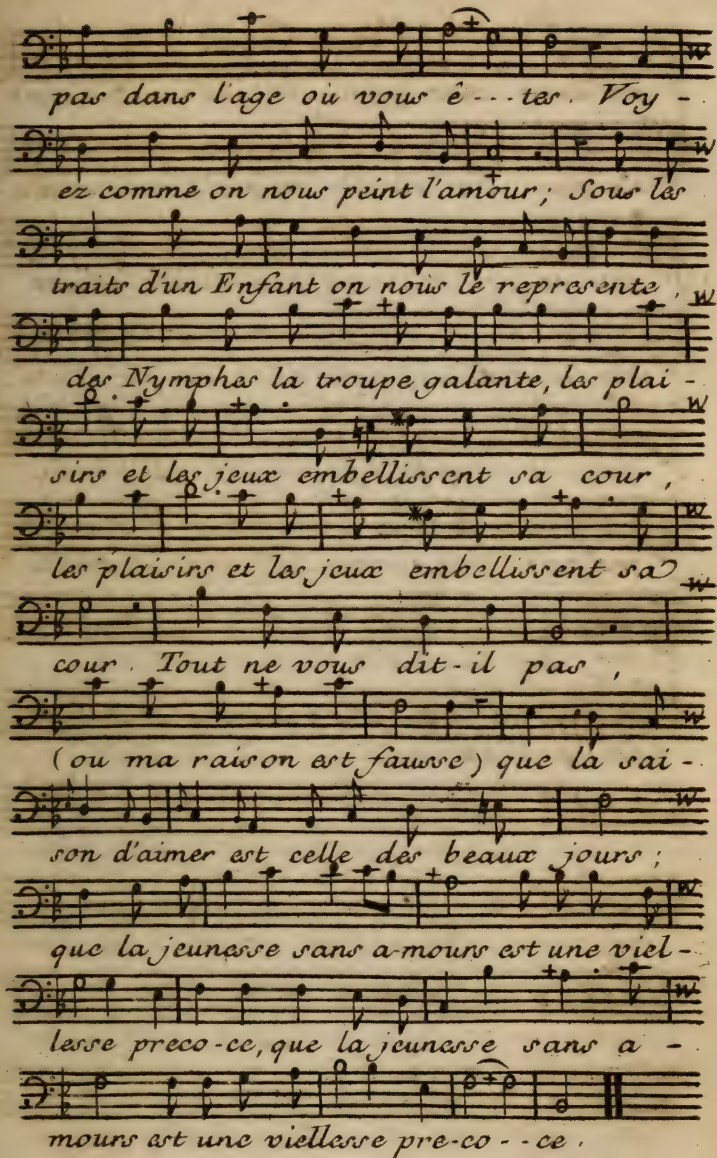 pas dans l'age où vous ê---tes. Voy-
ez comme on nous peint l'amour; Sous les
traits d'un Enfant on nous le represente,
des Nymphes la troupe galante, les plai-
sirs et les jeux embellissent sa cour,
les plaisirs et les jeux embellissent sa
cour. Tout ne vous dit-il pas,
(ou ma raison est fausse) que la sai-
son d'aimer est celle des beaux jours;
que la jeunesse sans a-mours est une viel-
lesse preco-ce, que la jeunesse sans a-
mours est une viellesse pre-co--ce.